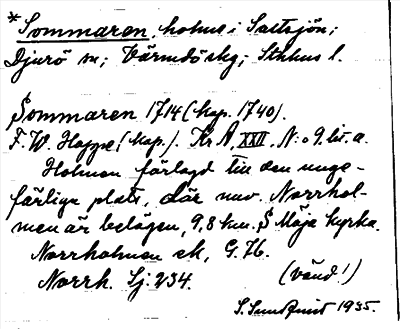 *Sommaren, holme i Saltsjön;
Djurö sn; Värmdö skg; Sthlms l.
Sommaren 1714 (kop. 1740).
F. W. Hoppe (kop.). Kr A, XXII, N:o 9. lit. a.
Holmen förlagd till den unge-
färliga plats, där nuv. Norrhol-
men är belägen, 9,8 km. S Möja kyrka.
Norrholmen ek, G. 76.
Norrh. Sj: 234. (vänd!)
S. Sundquist 1935.